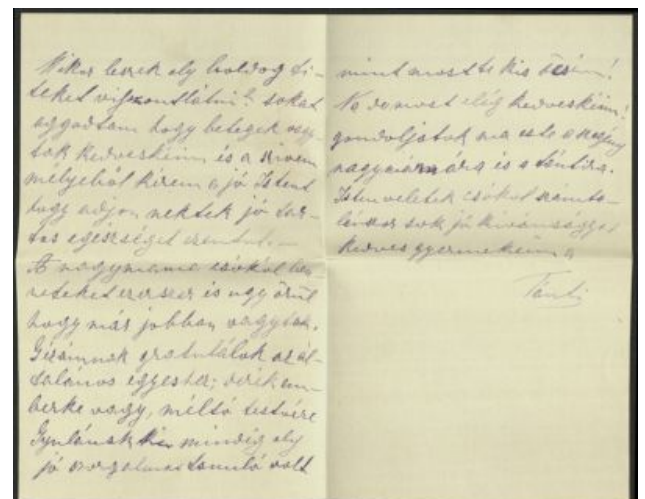 Mikor leszek oly boldog ti-
teket viszontlátni? sokat
aggodtam hogy betegek vagy-
tok kedveskéim és a szivem
melyéből kérem a jó Istent
hogy adjon nektek jó tar-
tós egeszséget ezentul.–
A nagymama csókol ben-
neteket ezerszer is ugy örül
hogy már jobban vagytok.
Gizámnak gratulálok az ál-
talános egyeshez; derék em-
berke vagy, méltó testvére
Gyulának ki mindig oly
jó szorgalmas tanuló volt
mint most te kis öcsém!
No de most elég kedveskéim!
gondoljatok ma este a szegény
nagymamára és a tántira.
Isten veletek csókol számta-
lanszor sok jó kivánsággal
kedves gyermekeim a
Tánti